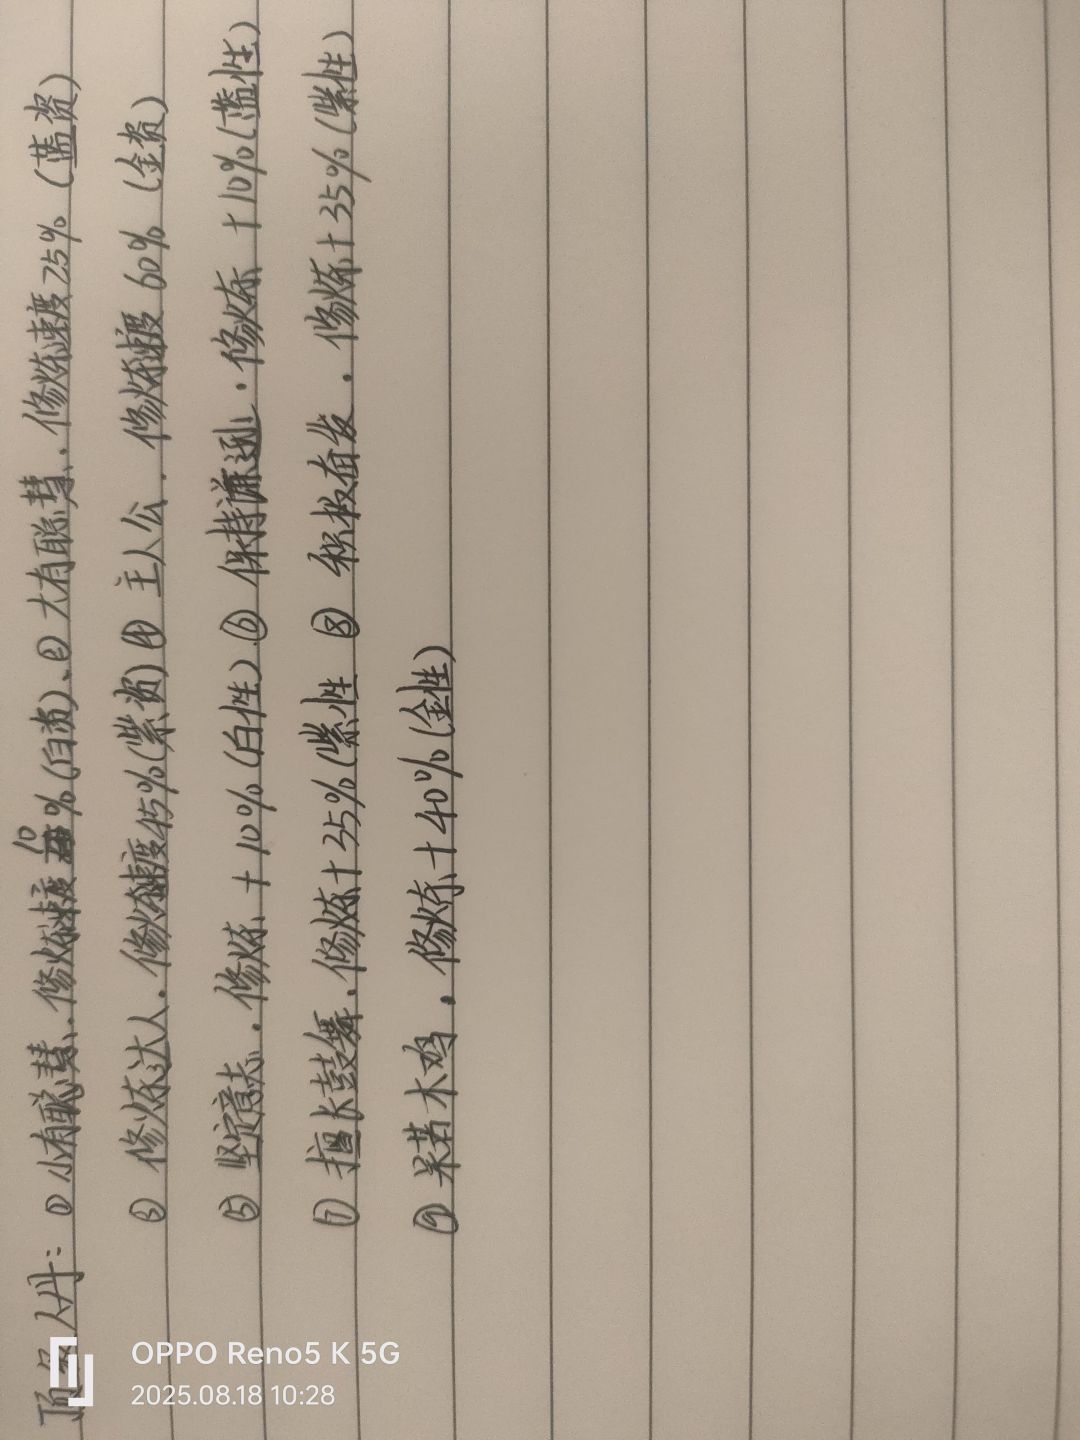 顶名丹：①小有聪慧、修炼速度10%(白资)、②大有聪慧、修炼速度25%(蓝资)
③修炼达人、修炼速度45%(紫资)④主人公、修炼速度60%(金资)
⑤坚定意志、修炼+10%(白性)、⑥保持谦逊、修炼+10%(蓝性)
⑦擅长鼓舞、修炼+35%(紫性 ⑧积极奋发、修炼+35%(紫性)
⑨呆若木鸡、修炼+40%(金性)
OPPO Reno5 K 5G
2025.08.18 10:28